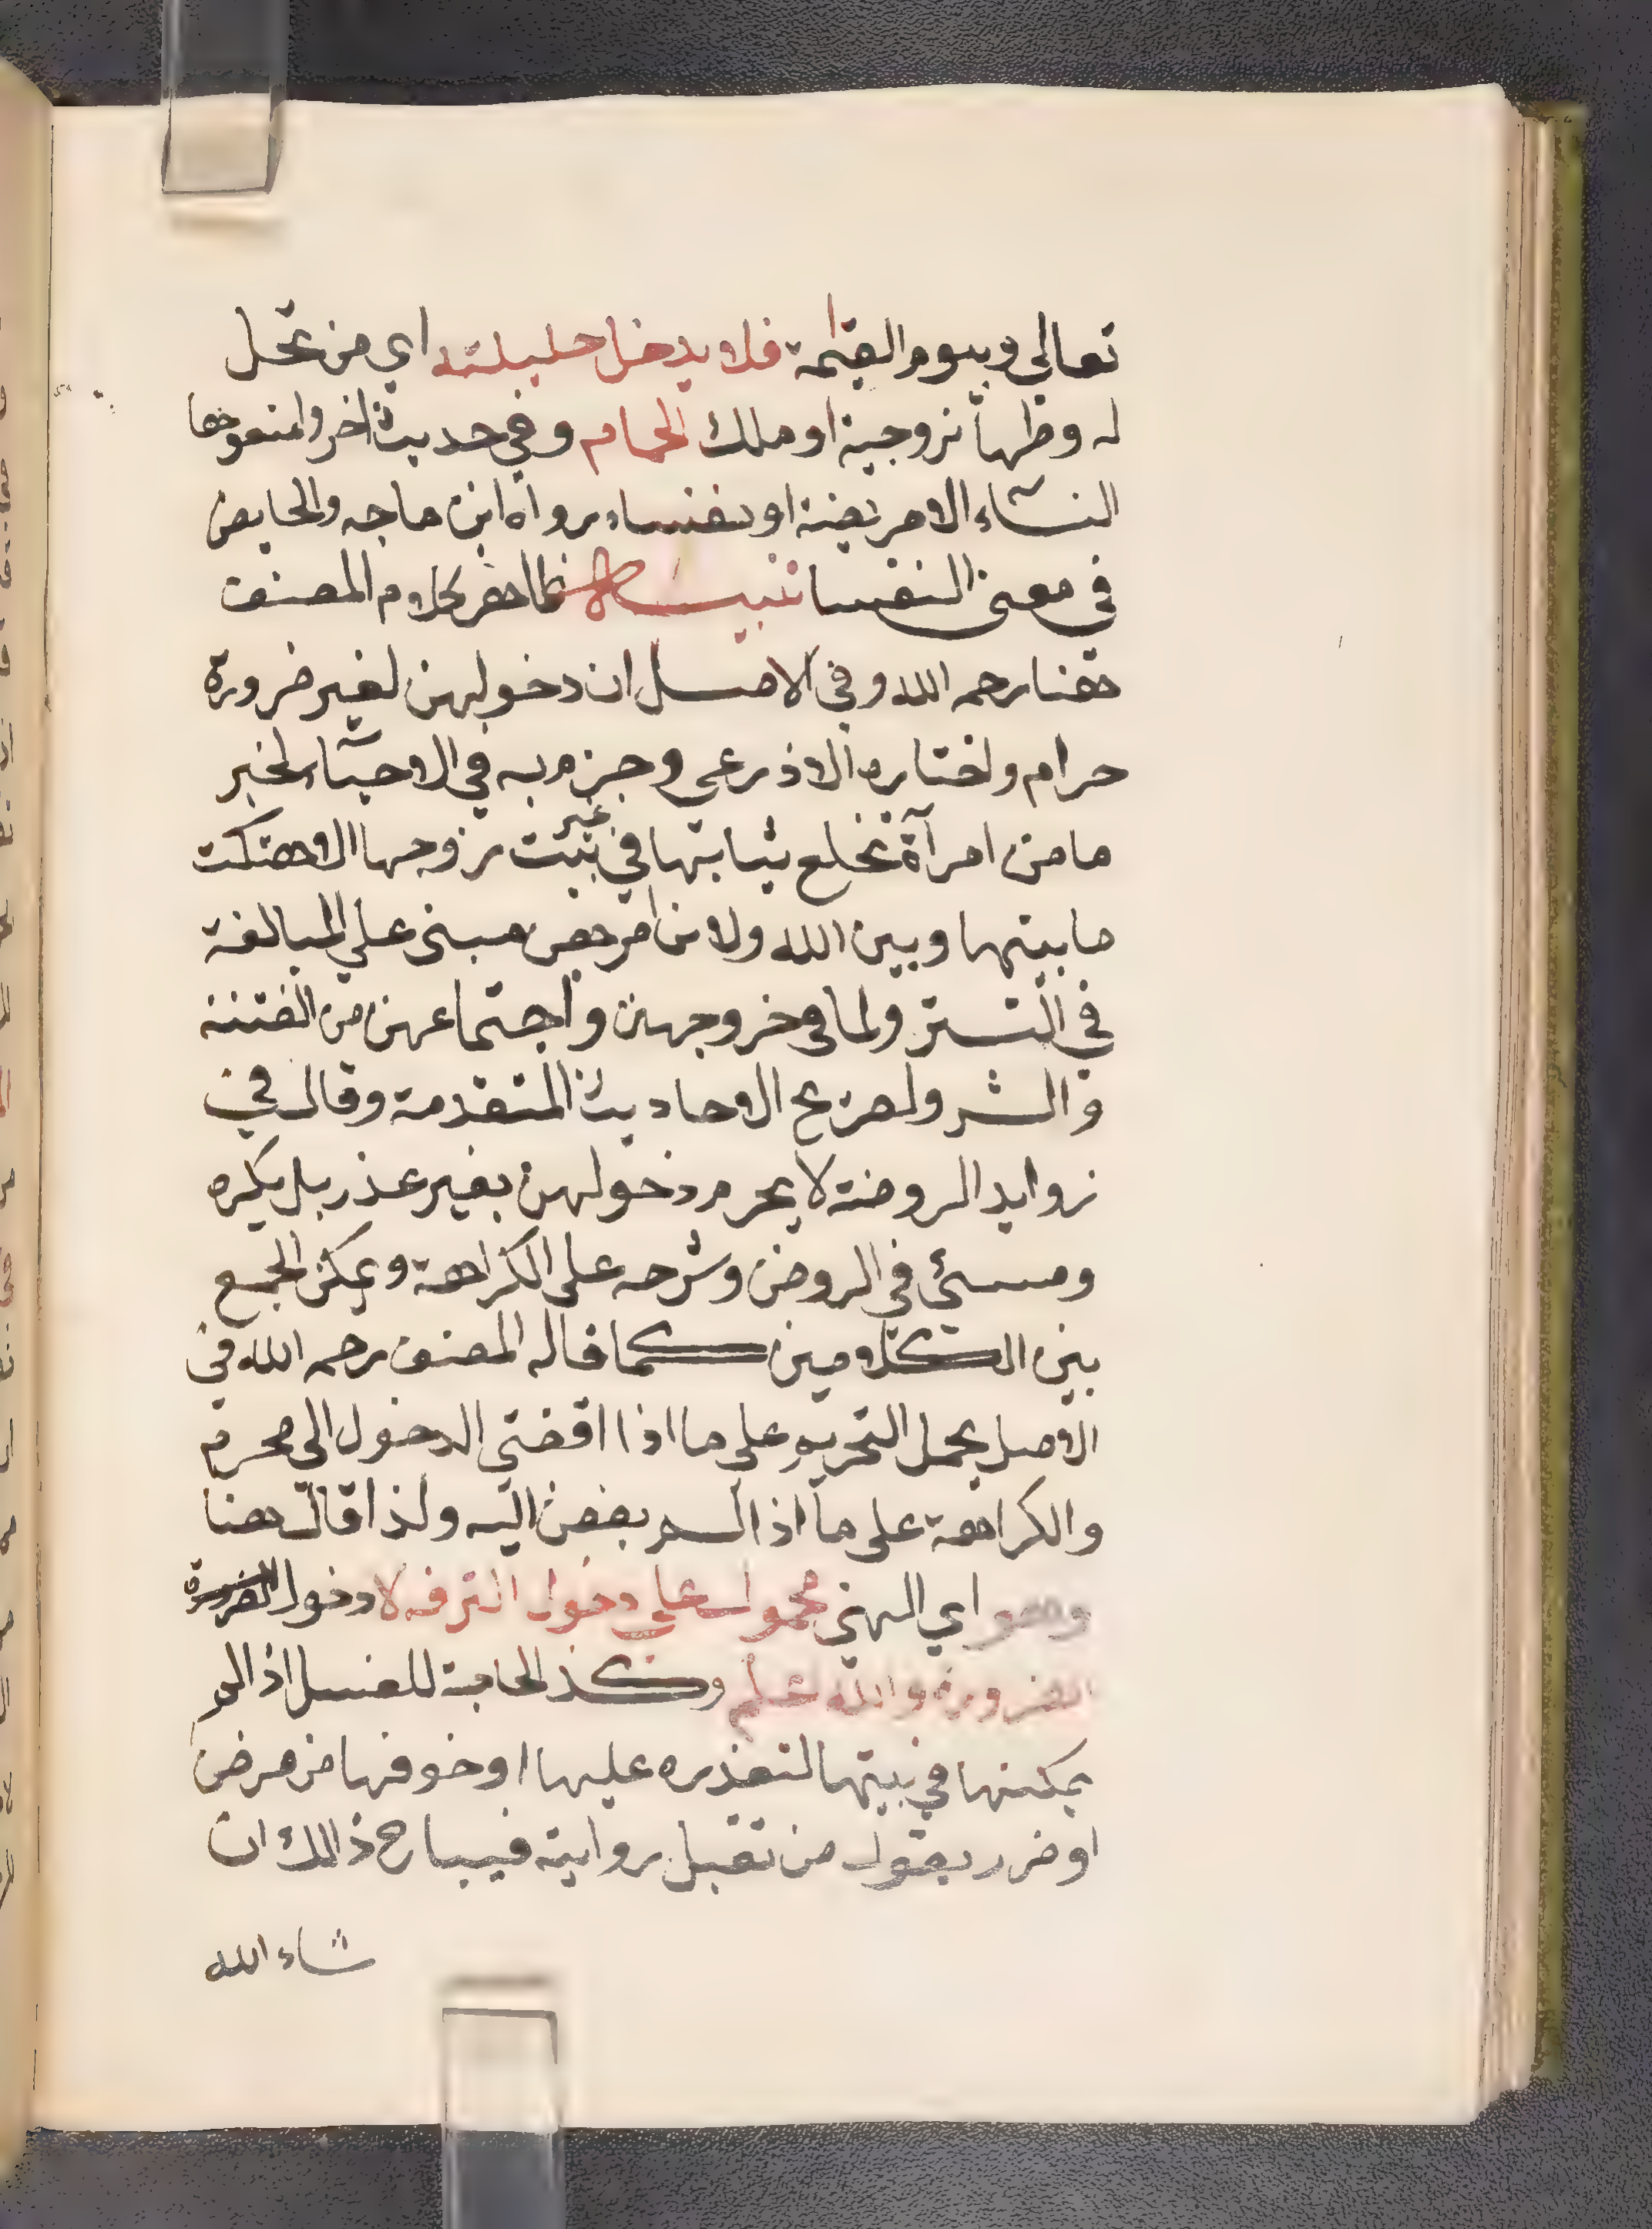 تعالى ويوم القيمة فلا يدخل حليلته اي من تحل
له وطها زوجية او ملك الحمام وفي حديث اخر وامنعوها
النساء الا مريضة او نفساء رواه ابن ماجه والحايض
في معنى النفسا تنبيه ظاهر كلام المصنف
هنا رحمه الله وفي الاصل ان دخولهن لغير ضرورة
حرام واختاره الاذرعي وجزم به في الاحياء لخبر
ما من امرآة تخلع ثيابها في غير بيت زوجها الا هتكت
ما بينها وبين الله ولان امرهن مبنى على المبالغة
في التستر ولما في خروجهن واجتماعهن من الفتنة
والشر ولصريح الاحاديث المتقدمة وقال في
زوايد الروضة لا يحرم دخولهن بغير عذر بل يكره
ومشى في الروض وشرحه على الكراهة ويمكن الجمع
بين الكلامين كما قاله المصنف رحمه الله في
الاصل بحمل التحريم على ما اذا افضى الدخول الى محرم
والكراهة على ما اذا لم يفض اليه ولذا قال هنا
وهو اي النهي محمول على دخول الترفه لا دخول الضرورة
الضرورة والله اعلم وكذا لحاجة للغسل اذا لم
يمكنها في بيتها لتعذره عليها او خوفها من مرض
او ضرر بقول من تقبل روايته فيباح ذالك ان
شاء الله